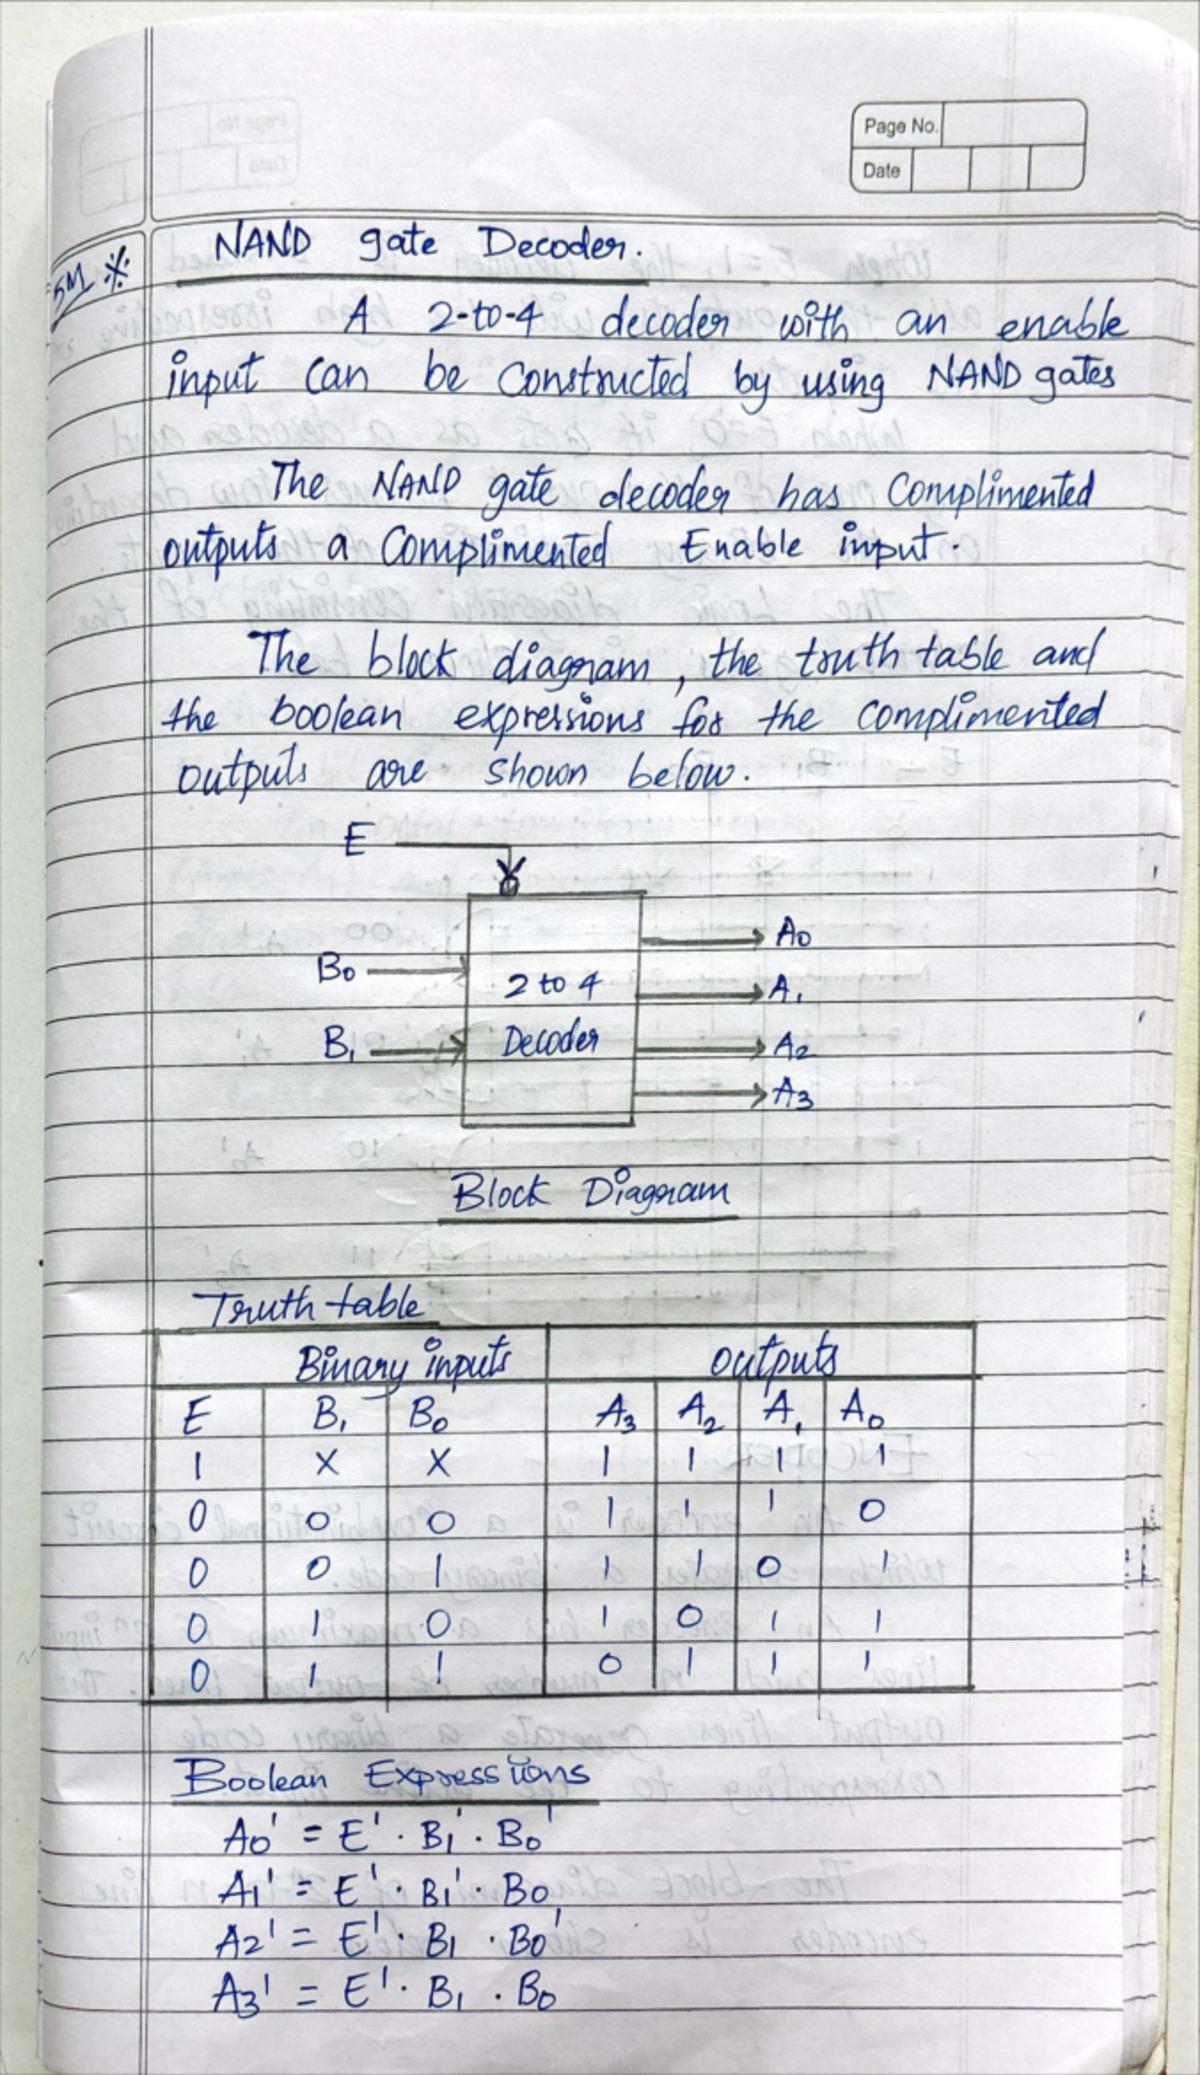 Page No.
Date
5M ※
NAND gate Decoder.
A 2-to-4 decoder with an enable
input can be constructed by using NAND gates
The NAND gate decoder has Complimented
outputs a Complimented Enable input.
The block diagram, the truth table and
the boolean expressions for the complimented
outputs are shown below.
E
B0
B1
2 to 4
Decoder
A0
A1
A2
A3
Block Diagram
Truth table
Binary inputs outputs
E B1 B0 A3 A2 A1 A0
1 X X 1 1 1 1
0 0 0 1 1 1 0
0 0 1 1 1 0 1
0 1 0 1 0 1 1
0 1 1 0 1 1 1
Boolean Expressions
A0' = E' · B1' · B0'
A1' = E' · B1' · B0
A2' = E' · B1 · B0'
A3' = E' · B1 · B0